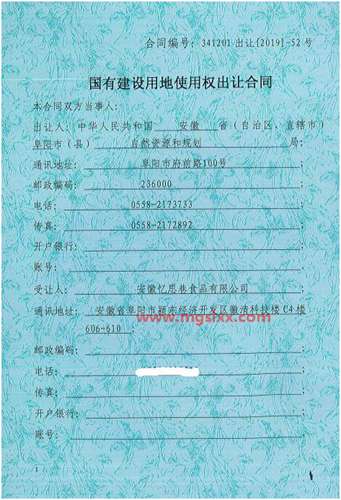 合同编号：341201出让[2019]-52号
国有建设用地使用权出让合同
本合同双方当事人：
出让人：中华人民共和国 安徽 省（自治区、直辖市）
阜阳市（县） 自然资源和规划 局；
通讯地址： 阜阳市府前路100号
邮政编码： 236000
电话： 0558-2173733
传真： 0558-2172892
开户银行：
账号：
受让人： 安徽忆思巷食品有限公司
通讯地址： 安徽省阜阳市颍东经济开发区徽清科技楼C4楼
606-610
www.mgslxx.com
邮政编码：
电话：
传真：
开户银行：
账号：